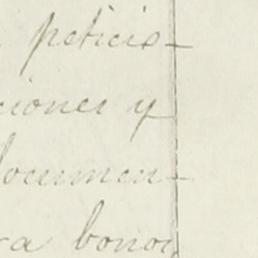 peticio-
ciones y
documen-
ra bonos